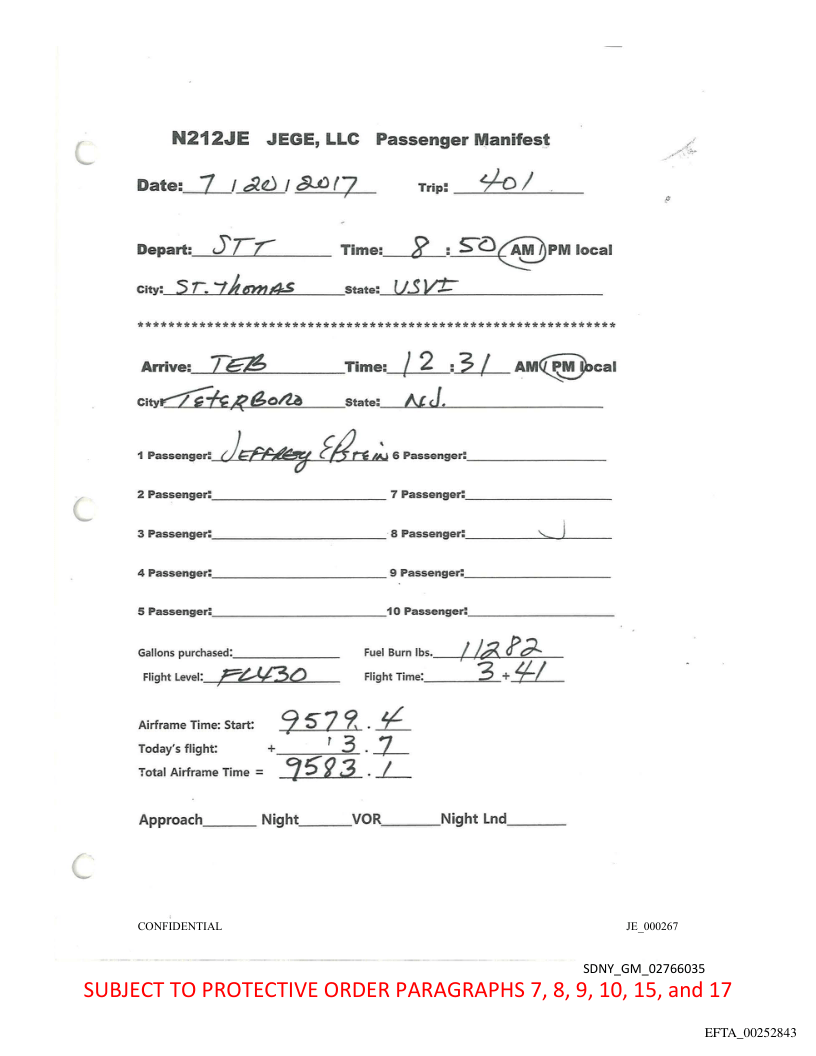 N212JE JEGE, LLC Passenger Manifest
Date: 7 / 20 / 2017 Trip: 401
Depart: STT Time: 8 : 50 AM / PM local
City: ST. Thomas State: USVI
************************************************************
Arrive: TEB Time: 12 : 31 AM / PM local
City: TETERBORO State: N.J.
1 Passenger: JEFFREY EPSTEIN 6 Passenger:
2 Passenger: 7 Passenger:
3 Passenger: 8 Passenger:
4 Passenger: 9 Passenger:
5 Passenger: 10 Passenger:
Gallons purchased: Fuel Burn lbs. 11282
Flight Level: FL430 Flight Time: 3 + 41
Airframe Time: Start: 9579 . 4
Today's flight: + 3 . 7
Total Airframe Time = 9583 . 1
Approach Night VOR Night Lnd
CONFIDENTIAL JE_000267
SDNY_GM_02766035
SUBJECT TO PROTECTIVE ORDER PARAGRAPHS 7, 8, 9, 10, 15, and 17
EFTA_00252843